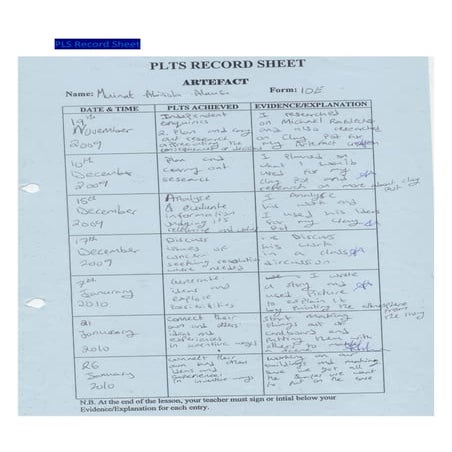 PLS Record Sheet
PLTS RECORD SHEET
ARTEFACT
Name: Form: 10E
DATE & TIME PLTS ACHIEVED EVIDENCE/EXPLANATION
19th November 2009
Independent enquiries
2. Plan and carry out research
I researched on Michael and also researched on Clay Pot for my Artefact
10th December 2009
Plan and carry out research
I Planned on what I would used for my clay pot and research on more about clay Pot
15th December 2009
Analyse & evaluate information judging its relevance and value
I Analyse his work and I used his ideas for my clay Pot
17th December 2009
Discuss issues of concern seeking resolution where needed
I Discuss his work in a class discussion
7th January 2010
Generate ideas and explore possibilities
I wrote a story and used Picture to explain it by Painting the atmosphere from the
21 January 2010
Connect their own and others' ideas and experiences in inventive ways
Start making things out of cardboard and Putting them with
26 January 2010
Connect their own and others ideas and experiences in inventive ways
Working on our buildings and making sure we get all the we want to put on the
N.B. At the end of the lesson, your teacher must sign or intial below your
Evidence/Explanation for each entry.